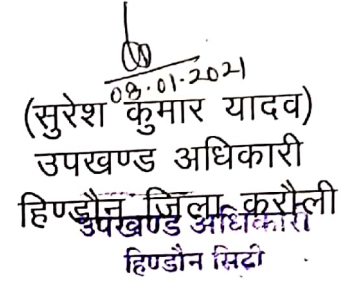 08.01.2021
(सुरेश कुमार यादव)
उपखण्ड अधिकारी
हिण्डौन जिला करौली
उपखण्ड अधिकारी
हिण्डौन सिटी